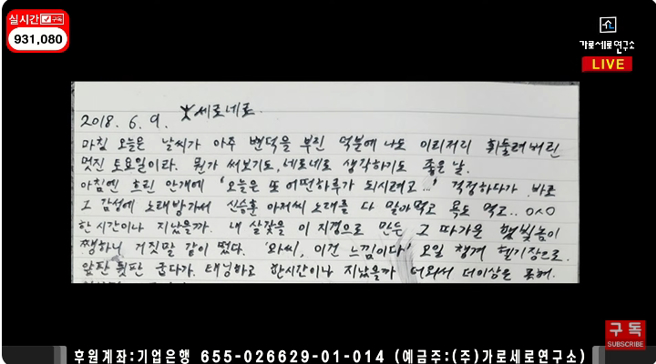 실시간 구독
931,080
가로세로연구소
LIVE
2018. 6. 9. 세로네로
마침 오늘은 날씨가 아주 변덕을 부린 덕분에 나도 이리저리 휘둘려버린
멋진 토요일이라. 뭔가 써보기도, 네로네로 생각하기도 좋은 날.
아침엔 흐린 안개에 '오늘은 또 어떤하루가 되시려고...' 걱정하다가 바로
그 감성에 노래방가서 신승훈 아저씨 노래를 다 말아먹고 욕도 먹고.. 0^0
한시간이나 지났을까. 내 살갗을 이 지경으로 만든 그 따가운 햇빛놈이
쨍하니 거짓말 같이 떴다. '와씨, 이건 느낌이다' 오일 챙겨 헬기장으로.
앞판 뒷판 굽다가. 태닝하고 한시간이나 지났을까 더워서 더이상은 못해.
구독
SUBSCRIBE
후원계좌:기업은행 655-026629-01-014 (예금주:(주)가로세로연구소)